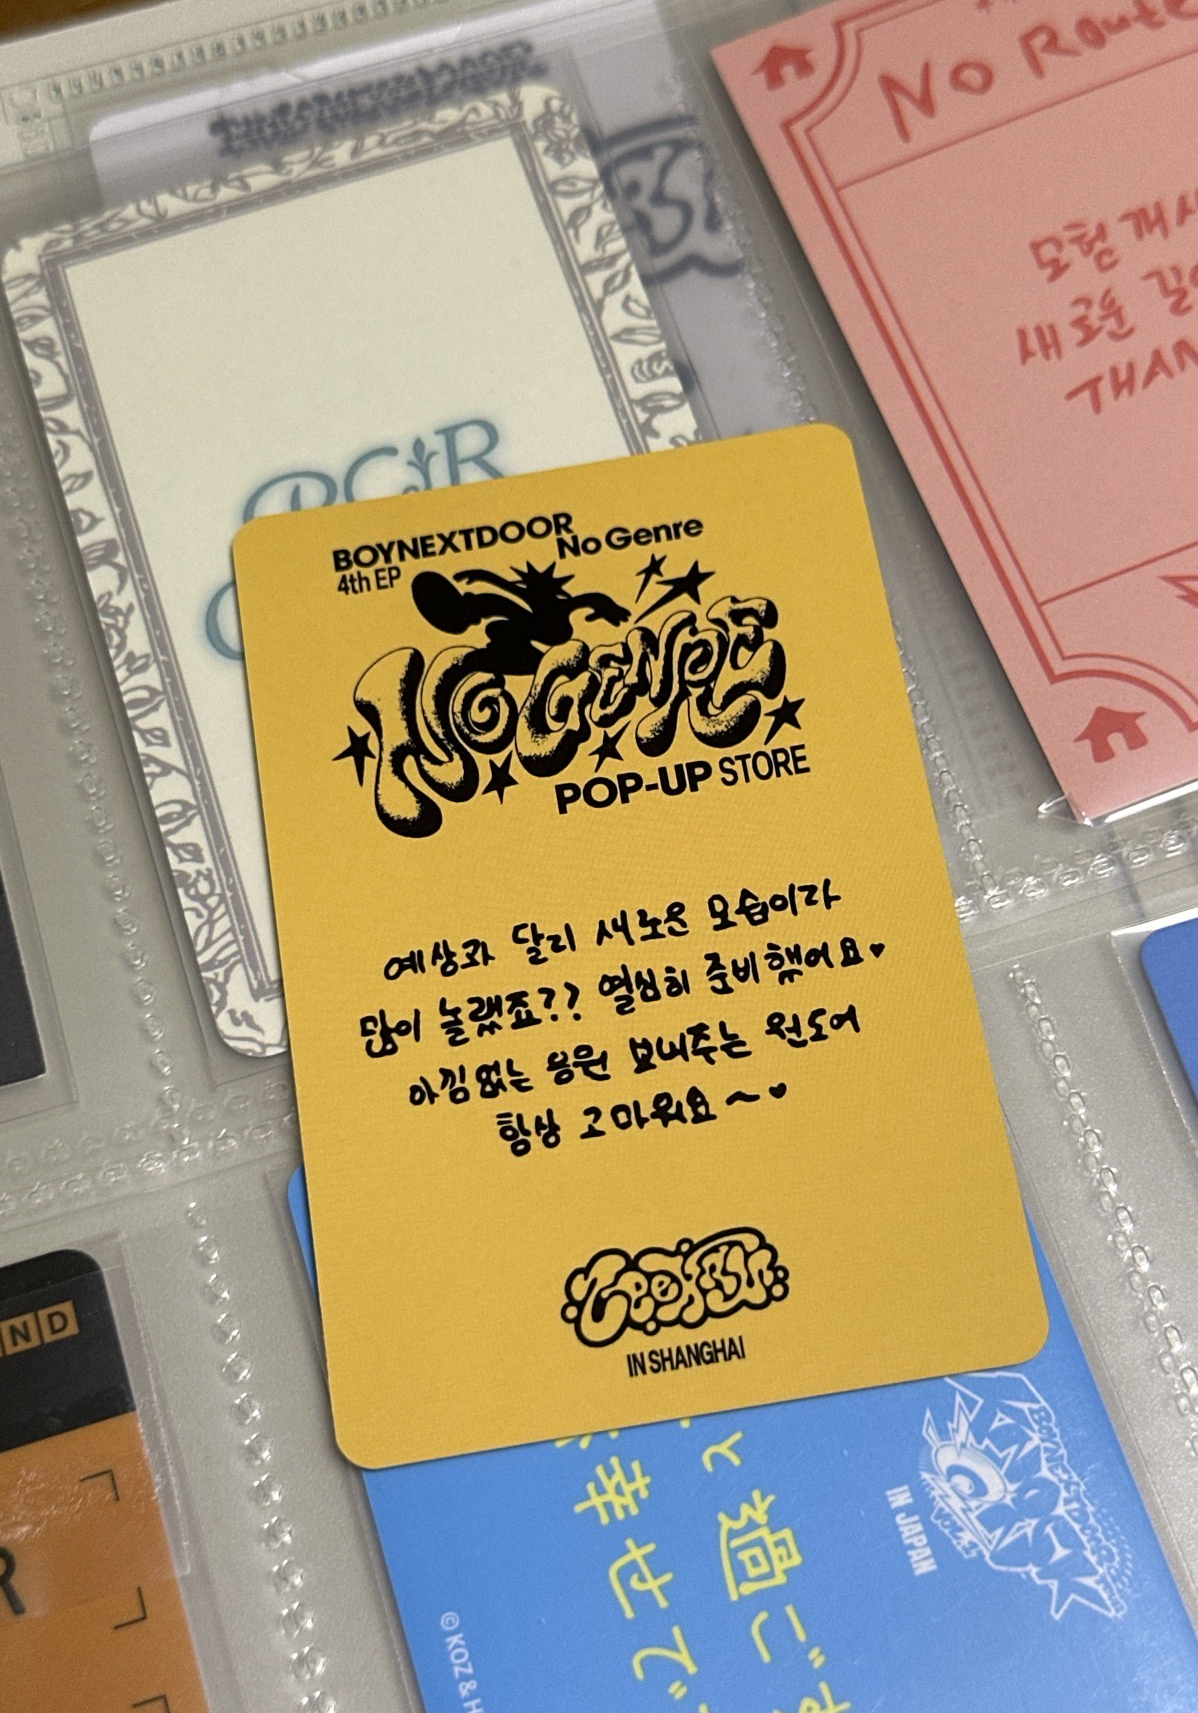 No Route
모험
새로운
THAN
BOYNEXTDOOR
4th EP
No Genre
NO GENRE
POP-UP STORE
예상과 달리 새로운 모습이라
많이 놀랬죠?? 열심히 준비했어요♥
아낌없는 응원 보내주는 원도어
항상 고마워요~♥
IN SHANGHAI
ND
R
と過ごす
幸せで
IN JAPAN
© KOZ & H